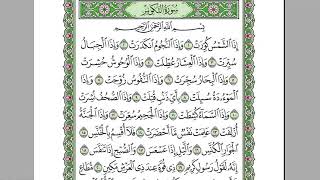 سورة التكوير
بسم الله الرحمن الرحيم
إذا الشمس كورت وإذا النجوم انكدرت وإذا الجبال
سيرت وإذا العشار عطلت وإذا الوحوش حشرت
وإذا البحار سجرت وإذا النفوس زوجت وإذا
الموءدة سئلت بأي ذنب قتلت وإذا الصحف نشرت
وإذا السماء كشطت وإذا الجحيم سعرت وإذا الجنة
أزلفت علمت نفس ما أحضرت فلا أقسم بالخنس
الجوار الكنس والليل إذا عسعس والصبح إذا تنفس
إنه لقول رسول كريم ذي قوة عند ذي العرش مكين مطاع